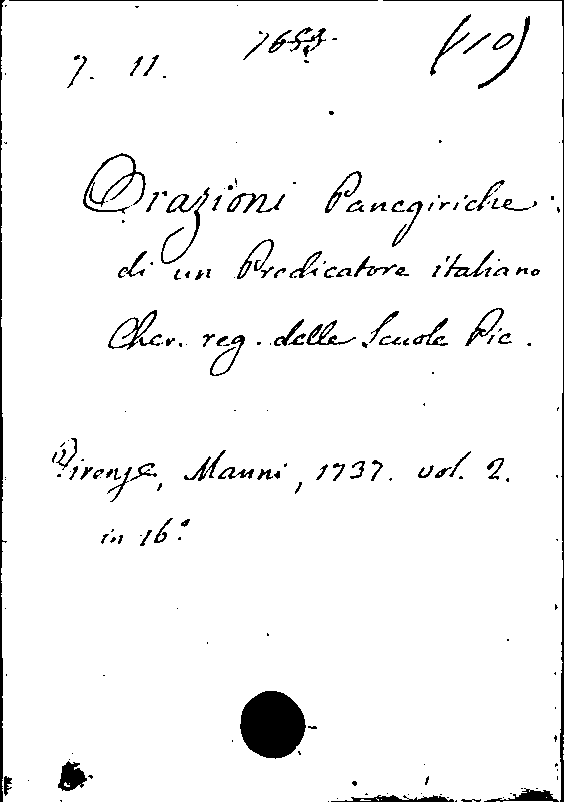 7. 11. (110)
Orazioni Panegiriche
di un Predicatore italiano
Cher. reg. delle Scuole Pie.
Firenze, Manni, 1737. vol. 2.
in 16°